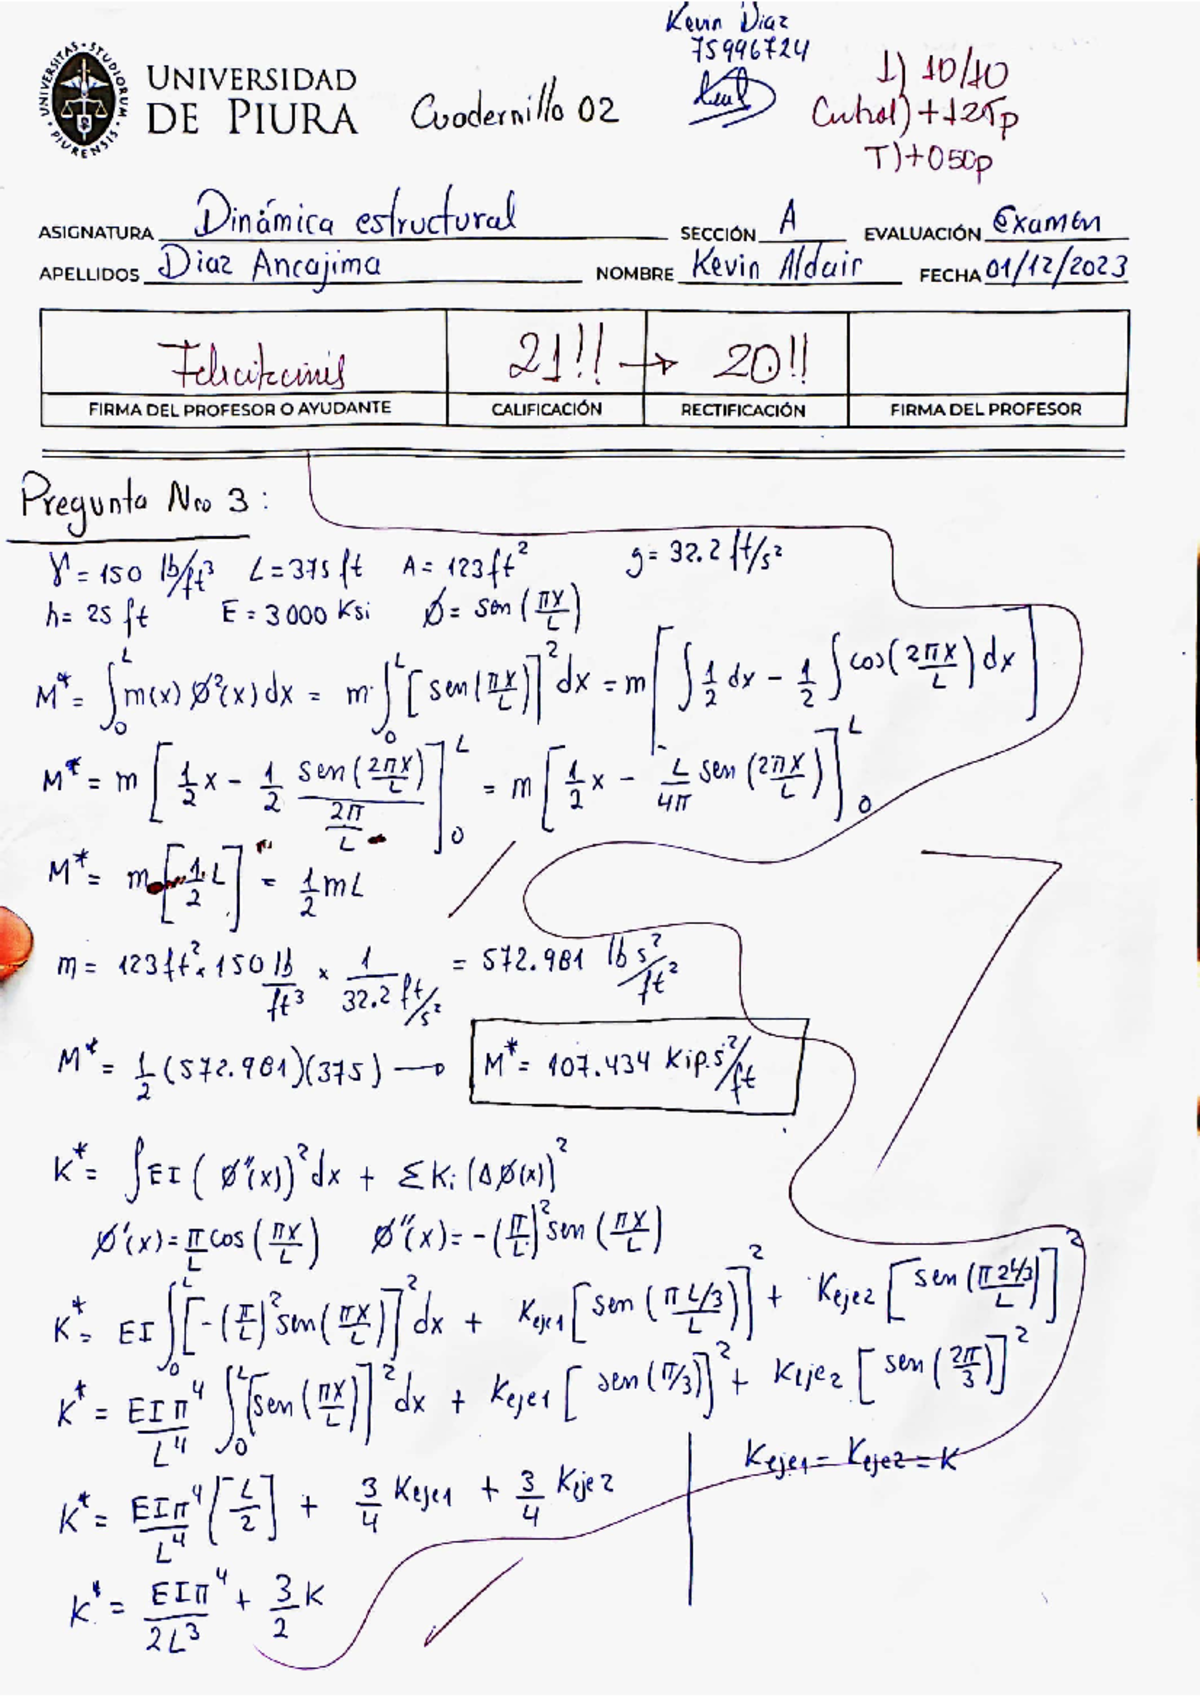 Kevin Diaz
75996724
1) 10/10
Control) +125p
T) +050p
UNIVERSITAS · STUDIORUM · PIURENSIS
UNIVERSIDAD
DE PIURA
Cuadernillo 02
ASIGNATURA Dinámica estructural SECCIÓN A EVALUACIÓN Examen
APELLIDOS Diaz Ancajima NOMBRE Kevin Aldair FECHA 01/12/2023
21!! → 20!!
FIRMA DEL PROFESOR O AYUDANTE CALIFICACIÓN RECTIFICACIÓN FIRMA DEL PROFESOR
Pregunta Nro 3:
γ = 150 lb/ft³ L = 375 ft A = 123 ft² g = 32.2 ft/s²
h = 25 ft E = 3000 Ksi Ø = sen(πx/L)
M* = ∫₀ᴸ m(x) Ø²(x) dx = m·∫₀ᴸ [sen(πx/L)]² dx = m[∫ 1/2 dx - 1/2 ∫ cos(2πx/L) dx]
M* = m [1/2 x - 1/2 sen(2πx/L)/(2π/L)]₀ᴸ = m [1/2 x - L/4π sen(2πx/L)]₀ᴸ
M* = m [1/2 L] = 1/2 mL
m = 123 ft² × 150 lb/ft³ × 1/(32.2 ft/s²) = 572.981 lb s²/ft²
M* = 1/2 (572.981)(375) → M* = 107.434 Kip.s²/ft
K* = ∫ EI (Ø''(x))² dx + ΣKi (ΔØ(x))²
Ø'(x) = π/L cos(πx/L) Ø''(x) = -(π/L)² sen(πx/L)
K* = EI ∫₀ᴸ [-(π/L)² sen(πx/L)]² dx + Keje1 [sen(π L/3 /L)]² + Keje2 [sen(π 2L/3 /L)]²
K* = EIπ⁴/L⁴ ∫₀ᴸ [sen(πx/L)]² dx + Keje1 [sen(π/3)]² + Keje2 [sen(2π/3)]²
Keje1 = Keje2 = K
K* = EIπ⁴/L⁴ [L/2] + 3/4 Keje1 + 3/4 Keje2
K* = EIπ⁴/2L³ + 3/2 K